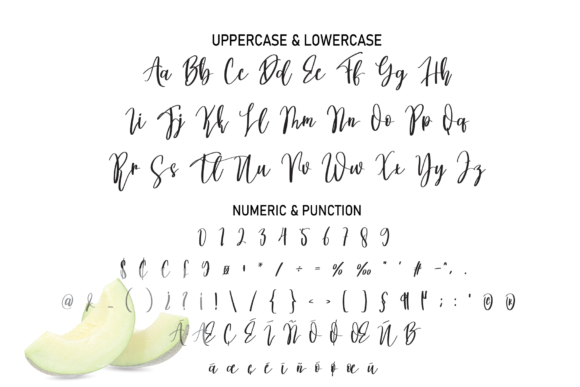 UPPERCASE & LOWERCASE
Aa Bb Cc Dd Ee Ff Gg Hh
Ii Jj Kk Ll Mm Nn Oo Pp Qq
Rr Ss Tt Uu Vv Ww Xx Yy Zz
NUMERIC & PUNCTION
0 1 2 3 4 5 6 7 8 9
$ ₵ C £ ¤ + * / ÷ = % ‰ " ' # - , .
@ & _ ( ) ¿ ? ¡ ! \ / { } < > ( ) § ¶ ; : ' ® ®
Æ Ç Ñ Œ
æ ç ñ œ